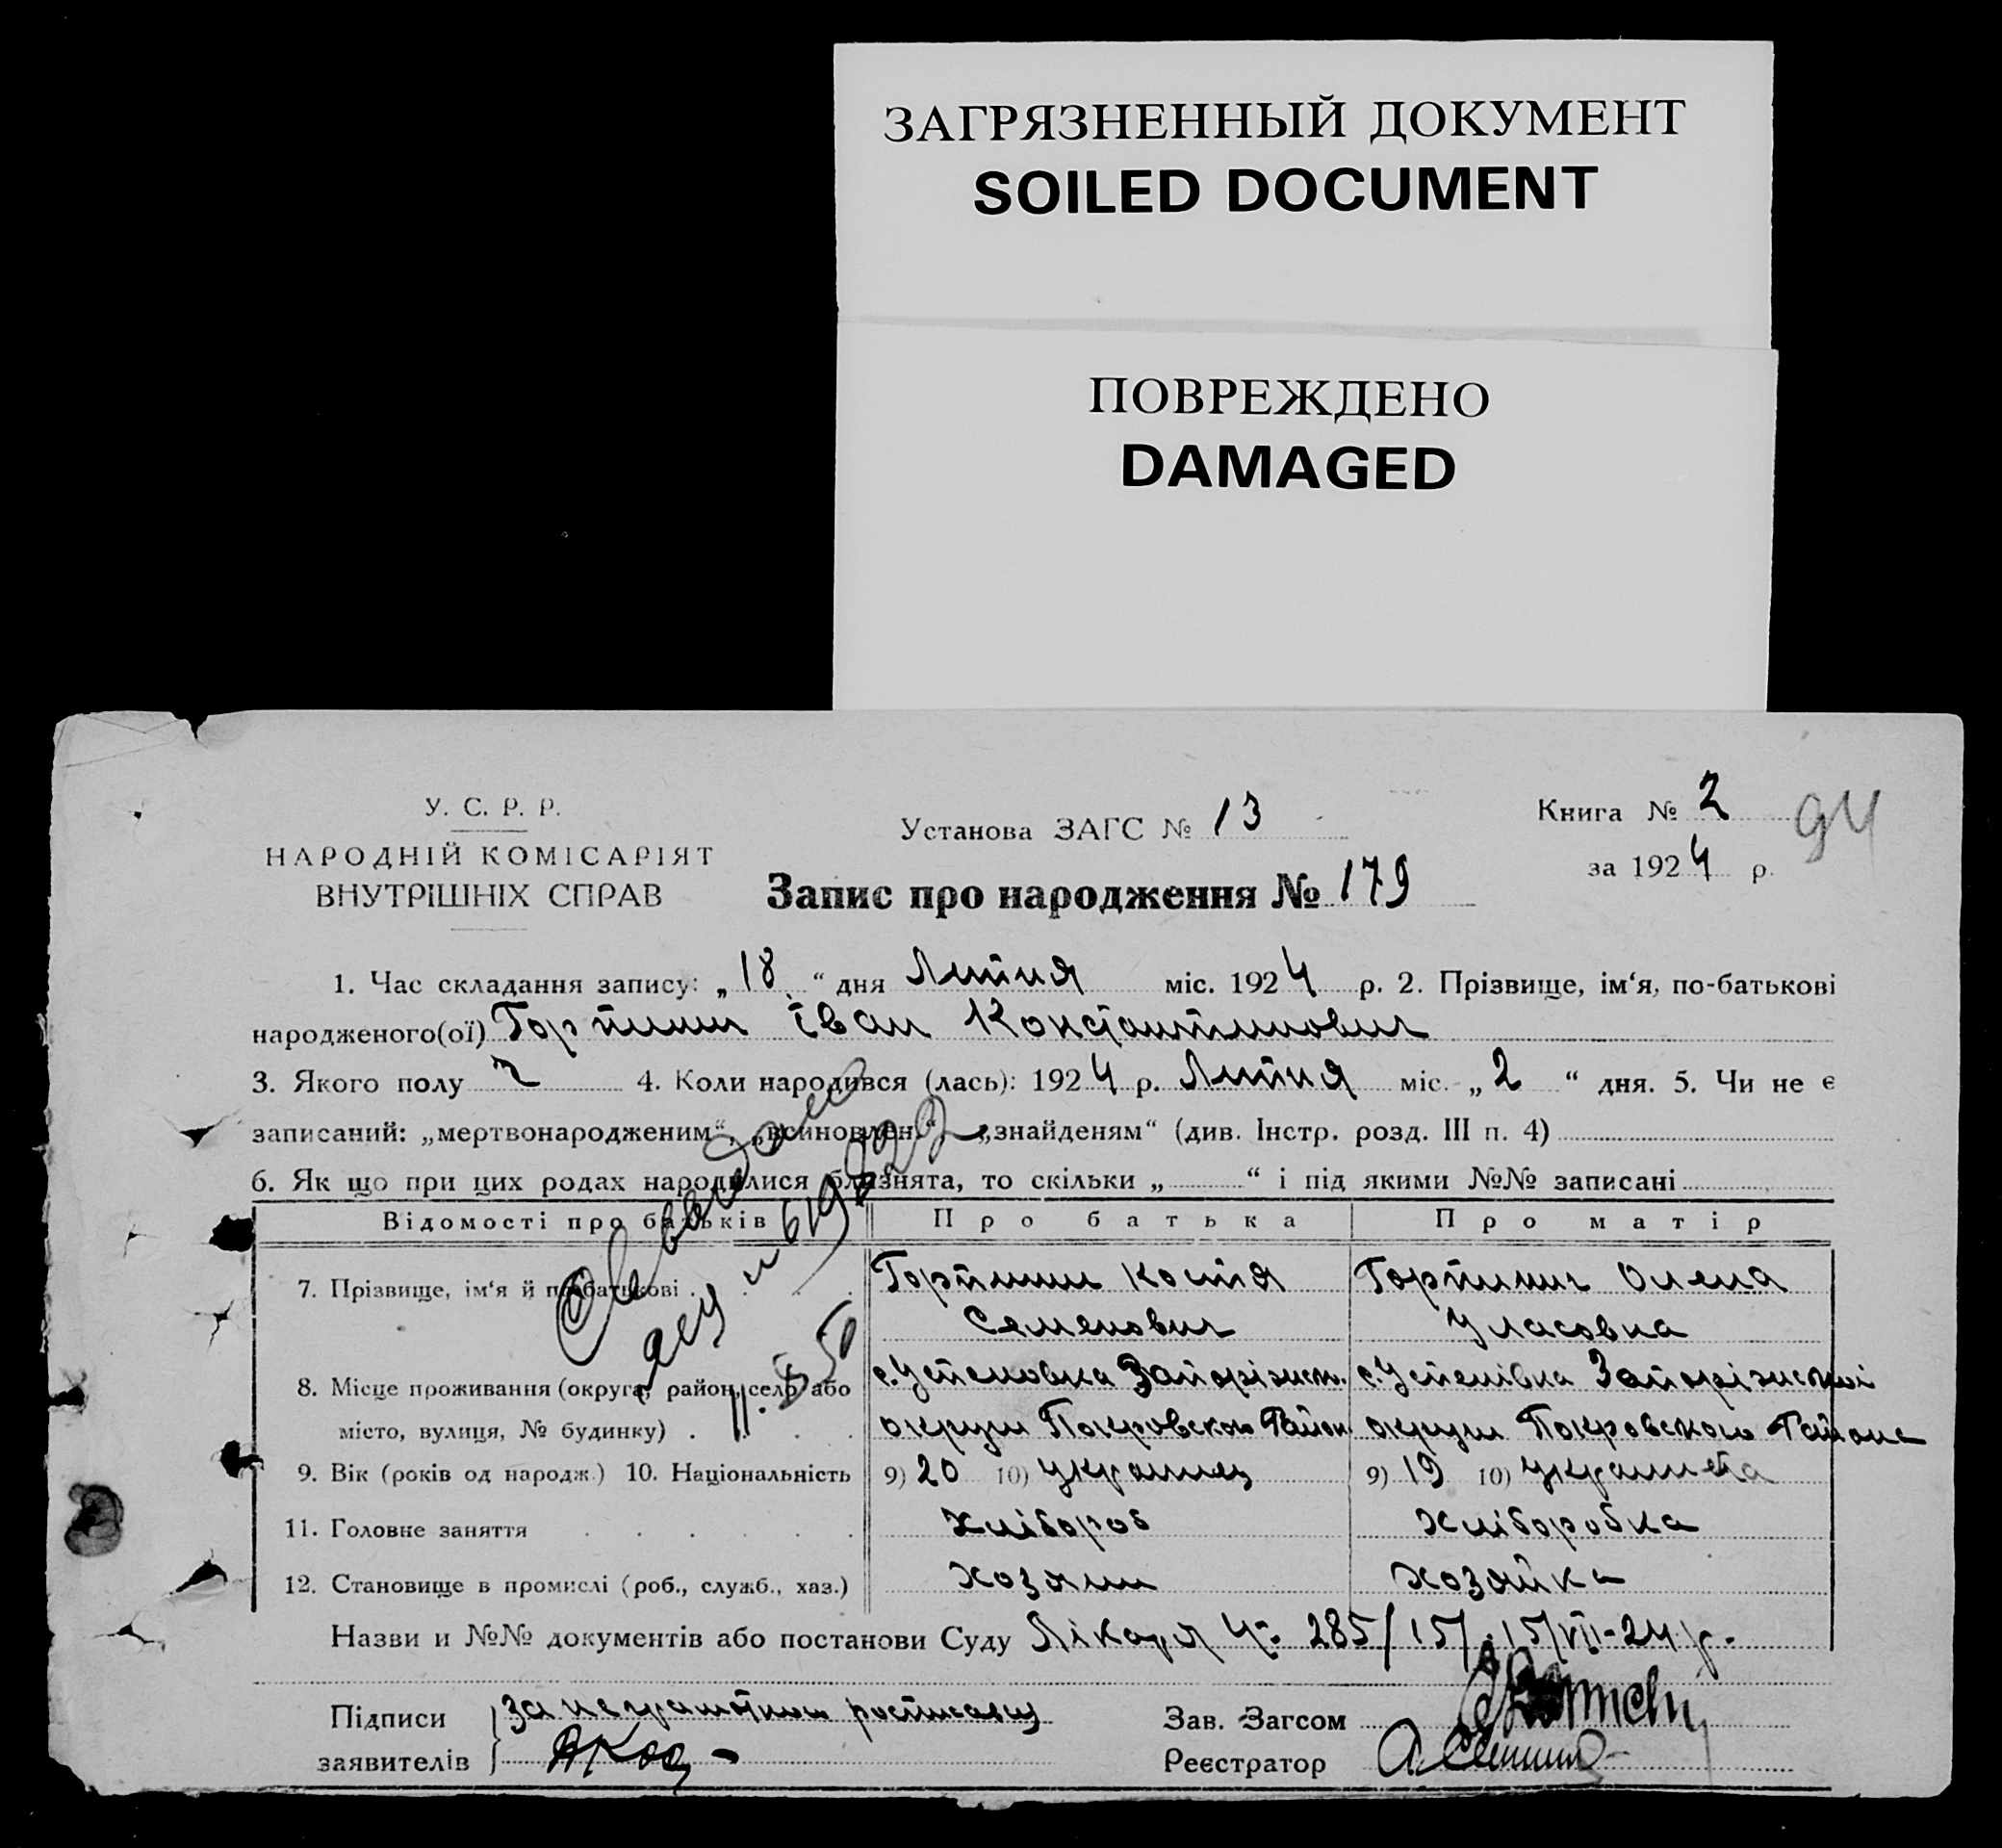 ЗАГРЯЗНЕННЫЙ ДОКУМЕНТ
SOILED DOCUMENT
ПОВРЕЖДЕНО
DAMAGED
У. С. Р. Р.
НАРОДНІЙ КОМІСАРІЯТ
ВНУТРІШНІХ СПРАВ
Установа ЗАГС № 13
Книга № 2
94
за 1924 р.
Запис про народження № 179
1. Час складання запису: „18“ дня Липня міс. 1924 р. 2. Прізвище, ім‘я, по-батькові
народженого(ої) Горпинич Іван Константинович
3. Якого полу ч 4. Коли народився (лась): 1924 р. Липня міс. „2“ дня. 5. Чи не є
записаний: „мертвонародженим“, „всиновлен.“, „знайденям“ (див. Інстр. розд. III п. 4)
6. Як що при цих родах народилися близнята, то скільки „ “ і під якими №№ записані
Відомості про батьків Про батька Про матір
7. Прізвище, ім‘я й по батькові Горпинич Костя Горпинич Олена
Семенович Уласовна
8. Місце проживання (округа, район, село або с. Успеновка Запорізьк. с. Успенівка Запорізської
місто, вулиця, № будинку) округи Покровского Район округи Покровского Района
9. Вік (років од народж.) 10. Національність 9) 20 10) Українец 9) 19 10) Українка
11. Головне заняття хлібороб хліборобка
12. Становище в промислі (роб., служб., хаз.) хозяин хозяйка
Назви и №№ документів або постанови Суду Лікаря Ч. 285/15/ 15/VII-24 р.
Підписи за неграмотного росписавсь Зав. Загсом
заявителів Реєстратор